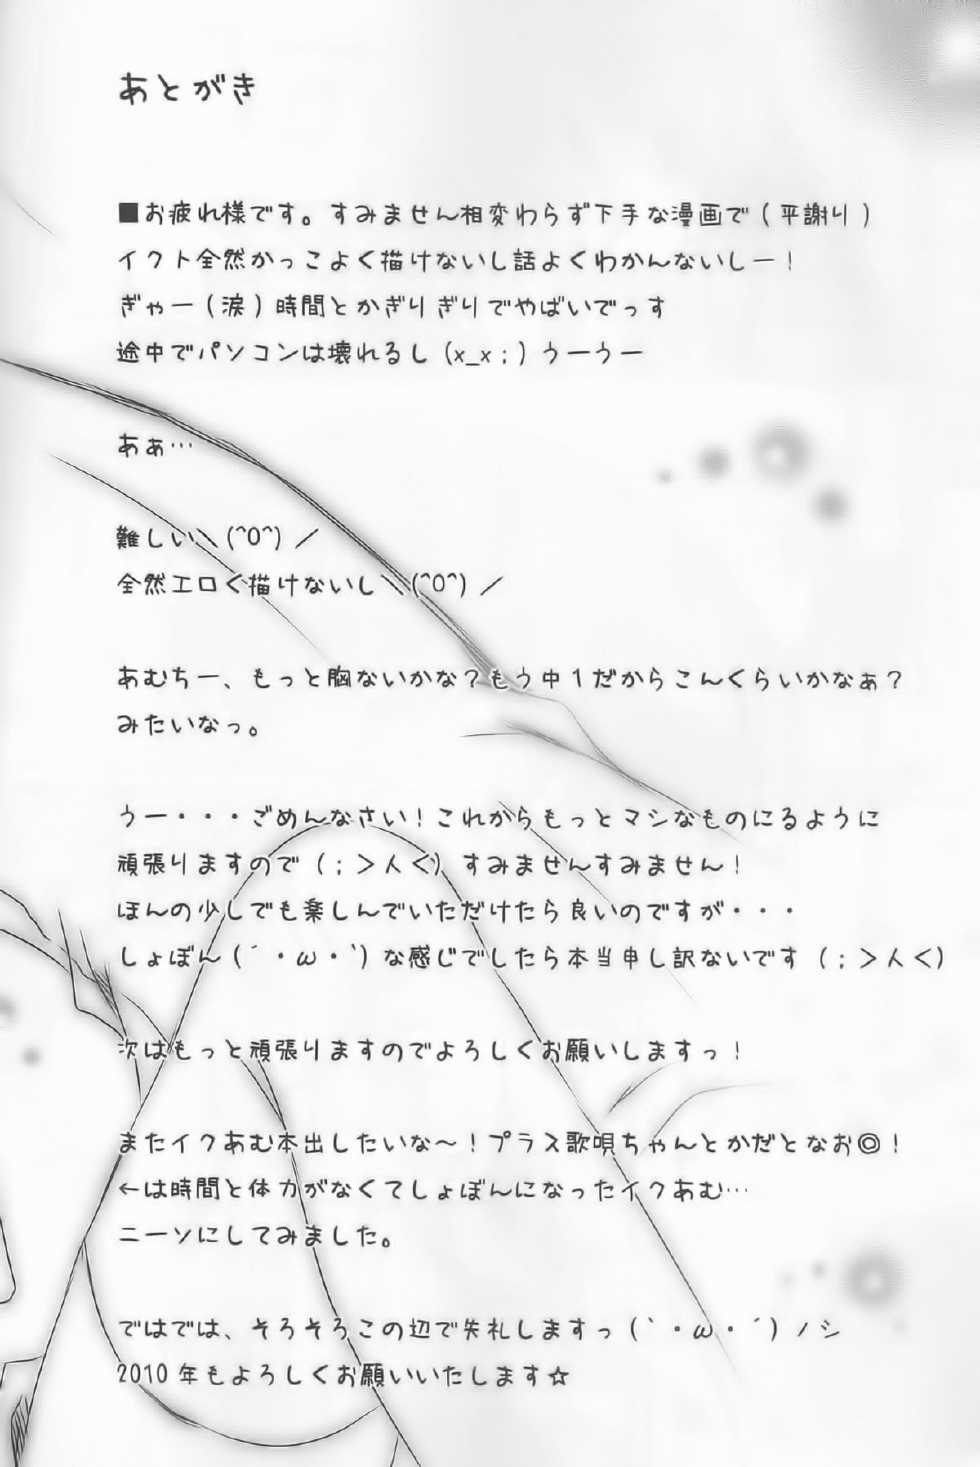 あとがき
■お疲れ様です。すみません相変わらず下手な漫画で(平謝り)
イクト全然かっこよく描けないし話よくわかんないしー！
ぎゃー(涙)時間とかぎりぎりでやばいでっす
途中でパソコンは壊れるし(x_x；)うーうー
あぁ…
難しい＼(^O^)／
うー・・・ごめんなさい！これからもっとマシなものにるように
頑張りますので(；＞人＜)すみませんすみません！
ほんの少しでも楽しんでいただけたら良いのですが・・・
しょぼん(´・ω・`)な感じでしたら本当申し訳ないです(；＞人＜)
次はもっと頑張りますのでよろしくお願いしますっ！
またイクあむ本出したいな～！プラス歌唄ちゃんとかだとなお◎！
←は時間と体力がなくてしょぼんになったイクあむ…
ニーソにしてみました。
ではでは、そろそろこの辺で失礼しますっ(`・ω・´)ノシ
2010年もよろしくお願いいたします☆